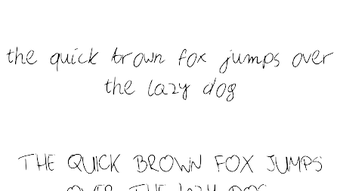 the quick brown fox jumps over
the lazy dog
THE QUICK BROWN FOX JUMPS
OVER THE LAZY DOG